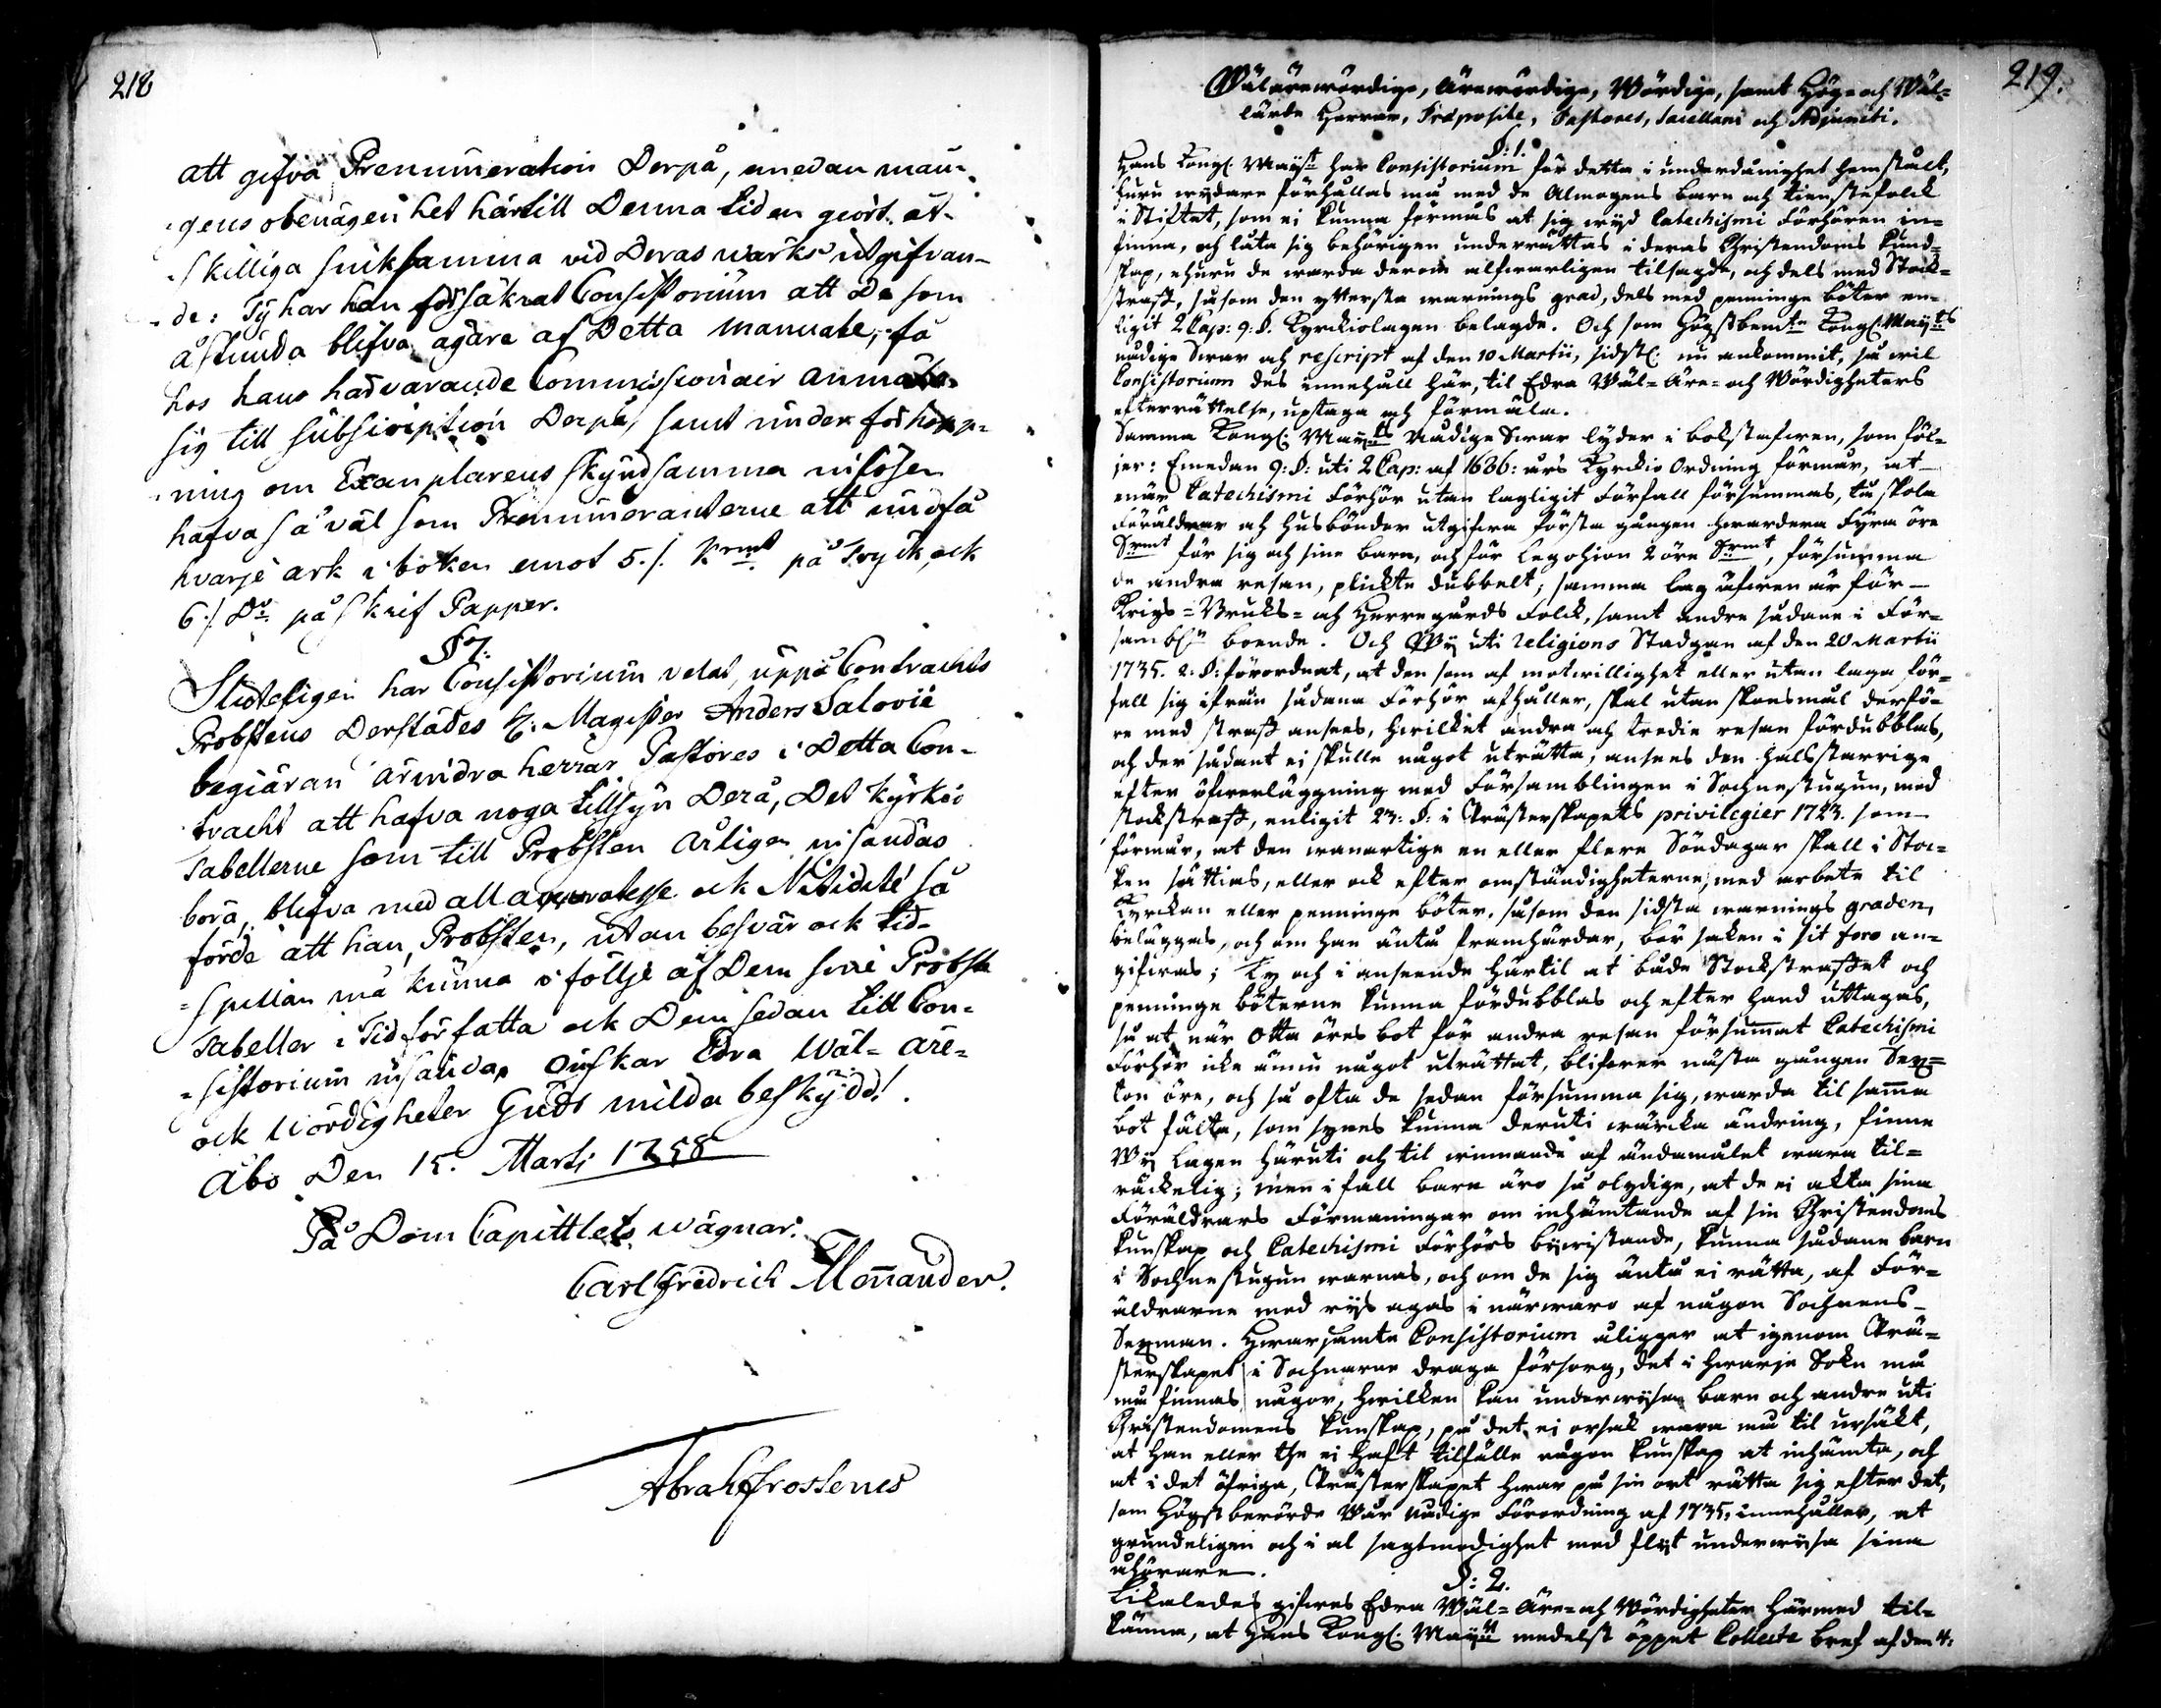 218
att gifva Prenumeration Derpå, emedan mau-
gens obenägenhet härtill Denna tiden giört åt-
skilliga sniksamma vid Deras wärks utgifvan-
de: Ty har han försäkrat Consistorium att De som
åstunda blifva ägare af Detta Manuale, få
hos hans härvarande Commissionair anmäla
sig till subscription Derpå, samt under förhopp-
ning om Exemplarens skyndsamma inlösen
hafva så väl som Prenumeranterne att undfå
hvarje ark i boken emot 5./. Krmt på Tryck, ock
6./. Do på Skrif Papper.
§ 7.
Sluteligen har Consistorium velat, uppå Contrachts
Probstens Derstädes H. Magister Anders Salovii
begiäran ärindra herrar Pastores i Detta Con-
tracht att hafva noga tillsyn Derå, Det Kyrkio
Tabellerne som till Probsten årligen insändas
böra, blifva med all accuratesse ock Nitidité så
förde att han, Probsten, utan besvär ock tid-
spillan må kunna iföllje af Dem sine Probste
Tabeller i Tid författa ock Dem sedan till Con-
sistorium insända, Önskar Edra Wäl- äre-
ock Wördigheter Guds milda beskydd!
Åbo Den 15. Marti 1758
På Dom Capittlets wägnar:
Carl Fridrich Mennander.
Abrah Frosterus
219.
Wälärewördige, Ärewördige, Wördige, samt Hög- och Wäl-
lärde Herrar, Præposite, Pastores, Sacellani och Adjuncti.
§. 1.
Hans Kongl. Mayst har Consistorium för detta i underdånighet hemstält,
huru widare förhållas må med de Almogens barn och tienstefolck
i Stiftet, som ei kunna förmås at sig wyd Catechismi Förhören in-
finna, och låta sig behörigen underrättas i deras Christendoms kund-
skap, ehuru de warda derom alfwarligen tilsagde, och dels med Stock-
straff, såsom den yttersta warnings grad, dels med penninge böter en-
ligit 2 Cap: 9. §. Kyrckiolagen belagde. Och som Högstbemte Kongl. Mayts
nådige Swar och rescript af den 10 Martii, sidstl. nu ankommit, så wil
Consistorium des innehåll här, til Edra Wäl- Äre- och Wördigheters
efterrättelse, uptaga och förmäla.
Samma Kongl. Mayts Nådige Swar lyder i bokstafwen, som föl-
jer: Emedan 9: §: uti 2 Cap: af 1686: års Kyrckio Ordning förmår, at
enär Catechismi Förhör utan lagligit Förfall försummas, tå skola
Föräldrar och husbönder utgifwa första gången hwardera Fyra öre
Srmt för sig och sine barn, och för Legohion 2 öre Srmt, försumma
de andra resan, plickte dubbelt; samma lag äfwen är för
Krigs- Bruks- och Herregårds Folck, samt andre sådane i För-
sambln boende. Och Wy uti religions Stadgan af den 20 Martii
1735. 2: §: förordnat, at den som af motwillighet eller utan laga för-
fall sig ifrån sådana Förhör afhåller, skal utan skonsmål derfö-
re med straff ansees, hwilket andra och tredie resan fördubblas,
och der sådant ei skulle något uträtta, ansees den halsstarrige
efter öfwerläggning med Församblingen i Sochnestugun, med
stockstraff, enligit 23: §: i Prästerskapets privilegier 1723. som
förmår, at den wanartige en eller flere Söndagar skall i Stoc-
ken sättias, eller ock efter omständigheterne, med arbete til
Kyrckan eller penninge böter, såsom den sidsta warnings graden,
beläggas, och om han äntå framhärdar, bör saken i sit foro an-
gifwas; Ty och i anseende härtil at både Stockstraffet och
penninge böterne kunna fördubblas och efter hand uttagas,
så at när Otta öres bot för andra resan försummat Catechismi
Förhör icke ännu något uträttat, blifwer nästa gången Sex-
ton öre, och så ofta de sedan försumma sig, warda til samma
bot fälta, som synes kunna deruti wärcka ändring, finne
Wy Lagen häruti och til winnande af ändamålet wara til-
räckelig; men i fall barn äro så olydige, at de ei akta sina
Föräldrars Förmaningar om inhämtande af sin Christendoms
kunskap och Catechismi Förhörs bywistande, kunna sådane barn
i Sochnestugun warnas, och om de sig äntå ei rätta, af För-
äldrarne med rys agas i närwaro af någon Sochnens
Sexman. Hwarjämte Consistorium åligger at igenom Prä-
sterskapet i Sochnarne draga försorg, det i hwarje Sokn må
må finnas någor, hwilken kan underwysa barn och andre uti
Christendomens kunskap, på det ei orsak wara må til ursäkt,
at han eller the ei haft tilfälle någon kunskap at inhämta, och
at i det öfriga, Prästerskapet hwar på sin ort rätta sig efter det,
som Högstberörde Wår Nådige Förordning af 1735, innehåller, at
grundeligen och i al sagtmodighet med flyt underwysa sina
åhörare.
§: 2.
Likaledes gifwes Edra Wäl- Äre- och Wördigheter härmed til-
känna, at Hans Kongl. Mayst medelst öppet Collecte bref af den 4: